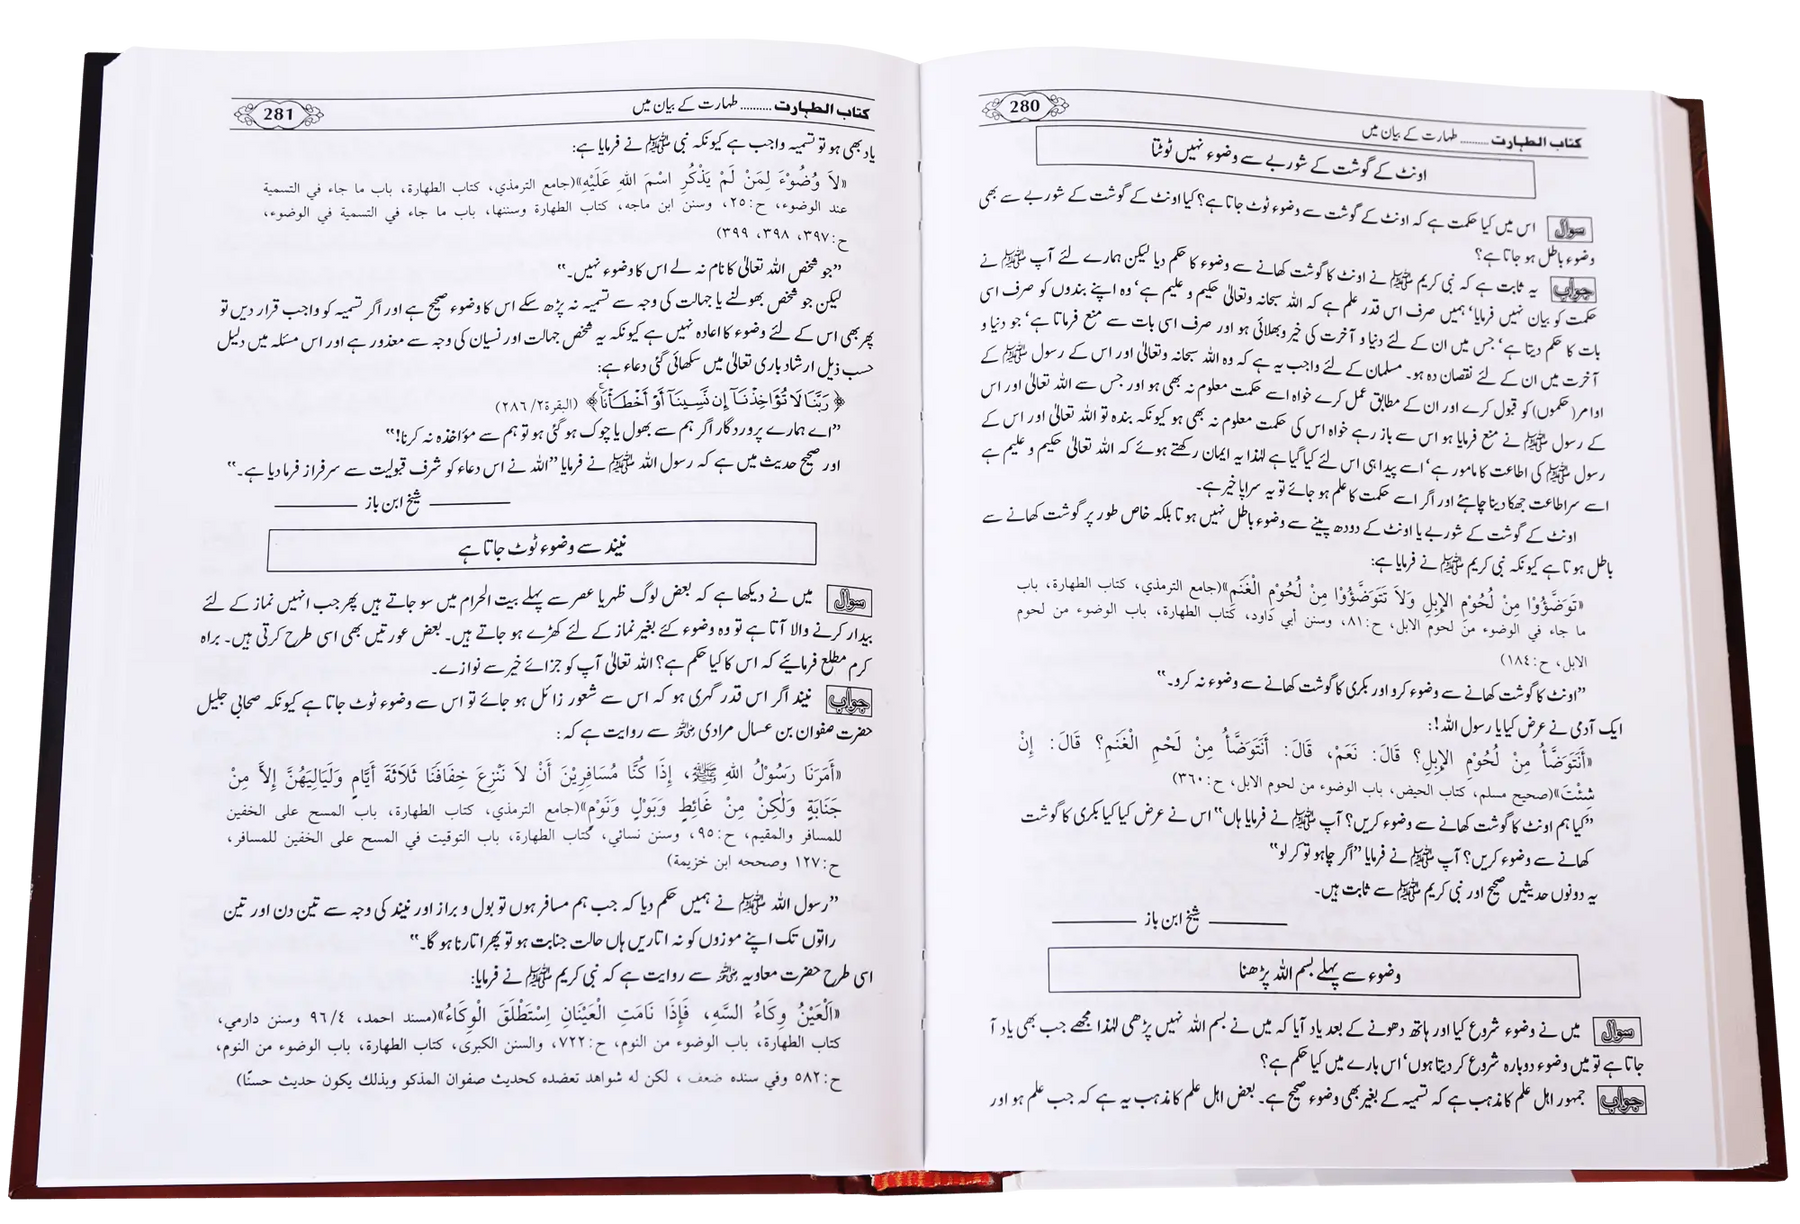 280
کتاب الطہارت ......... طہارت کے بیان میں
اونٹ کے گوشت کے شوربے سے وضوء نہیں ٹوٹتا
سوال اس میں کیا حکمت ہے کہ اونٹ کے گوشت سے وضوء ٹوٹ جاتا ہے؟ کیا اونٹ کے گوشت کے شوربے سے بھی
وضوء باطل ہو جاتا ہے؟
جواب یہ ثابت ہے کہ نبی کریم ﷺ نے اونٹ کا گوشت کھانے سے وضوء کا حکم دیا لیکن ہمارے لئے آپ ﷺ نے
حکمت کو بیان نہیں فرمایا‘ ہمیں صرف اس قدر علم ہے کہ اللہ سبحانہ وتعالیٰ حکیم و علیم ہے‘ وہ اپنے بندوں کو صرف اسی
بات کا حکم دیتا ہے‘ جس میں ان کے لئے دنیا و آخرت کی خیر وبھلائی ہو اور صرف اسی بات سے منع فرماتا ہے‘ جو دنیا و
آخرت میں ان کے لئے نقصان دہ ہو۔ مسلمان کے لئے واجب یہ ہے کہ وہ اللہ سبحانہ وتعالیٰ اور اس کے رسول ﷺ کے
اوامر (حکموں) کو قبول کرے اور ان کے مطابق عمل کرے خواہ اسے حکمت معلوم نہ بھی ہو اور جس سے اللہ تعالیٰ اور اس
کے رسول ﷺ نے منع فرمایا ہو اس سے باز رہے خواہ اس کی حکمت معلوم نہ بھی ہو کیونکہ بندہ تو اللہ تعالیٰ اور اس کے
رسول ﷺ کی اطاعت کا مامور ہے‘ اسے پیدا ہی اس لئے کیا گیا ہے لہٰذا یہ ایمان رکھتے ہوئے کہ اللہ تعالیٰ حکیم و علیم ہے
اسے سر اطاعت جھکا دینا چاہئے اور اگر اسے حکمت کا علم ہو جائے تو یہ سراپا خیر ہے۔
اونٹ کے گوشت کے شوربے یا اونٹ کے دودھ پینے سے وضوء باطل نہیں ہوتا بلکہ خاص طور پر گوشت کھانے سے
باطل ہوتا ہے کیونکہ نبی کریم ﷺ نے فرمایا ہے:
«تَوَضَّؤُوْا مِنْ لُحُوْمِ الإِبِلِ وَلاَ تَتَوَضَّؤُوْا مِنْ لُحُوْمِ الْغَنَمِ»(جامع الترمذي، كتاب الطهارة، باب
ما جاء في الوضوء من لحوم الابل، ح:٨١، وسنن أبي داود، كتاب الطهارة، باب الوضوء من لحوم
الابل، ح:١٨٤)
”اونٹ کا گوشت کھانے سے وضوء کرو اور بکری کا گوشت کھانے سے وضوء نہ کرو۔“
ایک آدمی نے عرض کیا یا رسول اللہ!:
«أَنَتَوَضَّأُ مِنْ لُحُوْمِ الإِبِلِ؟ قَالَ: نَعَمْ، قَالَ: أَنَتَوَضَّأُ مِنْ لَحْمِ الْغَنَمِ؟ قَالَ: إِنْ
شِئْتَ»(صحيح مسلم، كتاب الحيض، باب الوضوء من لحوم الابل، ح:٣٦٠)
”کیا ہم اونٹ کا گوشت کھانے سے وضوء کریں؟ آپ ﷺ نے فرمایا ہاں“ اس نے عرض کیا کیا بکری کا گوشت
کھانے سے وضوء کریں؟ آپ ﷺ نے فرمایا ”اگر چاہو تو کر لو“
یہ دونوں حدیثیں صحیح اور نبی کریم ﷺ سے ثابت ہیں۔
شیخ ابن باز
وضوء سے پہلے بسم اللہ پڑھنا
سوال میں نے وضوء شروع کیا اور ہاتھ دھونے کے بعد یاد آیا کہ میں نے بسم اللہ نہیں پڑھی لہٰذا مجھے جب بھی یاد آ
جاتا ہے تو میں وضوء دوبارہ شروع کر دیتا ہوں‘ اس بارے میں کیا حکم ہے؟
جواب جمہور اہل علم کا مذہب ہے کہ تسمیہ کے بغیر بھی وضوء صحیح ہے۔ بعض اہل علم کا مذہب یہ ہے کہ جب علم ہو اور
281
کتاب الطہارت ......... طہارت کے بیان میں
یاد بھی ہو تو تسمیہ واجب ہے کیونکہ نبی ﷺ نے فرمایا ہے:
«لاَ وُضُوْءَ لِمَنْ لَمْ يَذْكُرِ اسْمَ اللهِ عَلَيْهِ»(جامع الترمذي، كتاب الطهارة، باب ما جاء في التسمية
عند الوضوء، ح:٢٥، وسنن ابن ماجه، كتاب الطهارة وسننها، باب ما جاء في التسمية في الوضوء،
ح:٣٩٧، ٣٩٨، ٣٩٩)
”جو شخص اللہ تعالیٰ کا نام نہ لے اس کا وضوء نہیں۔“
لیکن جو شخص بھولنے یا جہالت کی وجہ سے تسمیہ نہ پڑھ سکے اس کا وضوء صحیح ہے اور اگر تسمیہ کو واجب قرار دیں تو
پھر بھی اس کے لئے وضوء کا اعادہ نہیں ہے کیونکہ یہ شخص جہالت اور نسیان کی وجہ سے معذور ہے اور اس مسئلہ میں دلیل
حسب ذیل ارشاد باری تعالیٰ میں سکھائی گئی دعاء ہے:
﴿ رَبَّنَا لَا تُؤَاخِذْنَآ إِن نَّسِينَآ أَوْ أَخْطَأْنَا﴾ (البقرة٢/٢٨٦)
”اے ہمارے پروردگار اگر ہم سے بھول یا چوک ہو گئی ہو تو ہم سے مؤاخذہ نہ کرنا!“
اور صحیح حدیث میں ہے کہ رسول اللہ ﷺ نے فرمایا ”اللہ نے اس دعاء کو شرف قبولیت سے سرفراز فرما دیا ہے۔“
شیخ ابن باز
نیند سے وضوء ٹوٹ جاتا ہے
سوال میں نے دیکھا ہے کہ بعض لوگ ظہر یا عصر سے پہلے بیت الحرام میں سو جاتے ہیں پھر جب انہیں نماز کے لئے
بیدار کرنے والا آتا ہے تو وہ وضوء کئے بغیر نماز کے لئے کھڑے ہو جاتے ہیں۔ بعض عورتیں بھی اسی طرح کرتی ہیں۔ براہ
کرم مطلع فرمائیے کہ اس کا کیا حکم ہے؟ اللہ تعالیٰ آپ کو جزائے خیر سے نوازے۔
جواب نیند اگر اس قدر گہری ہو کہ اس سے شعور زائل ہو جائے تو اس سے وضوء ٹوٹ جاتا ہے کیونکہ صحابی جلیل
حضرت صفوان بن عسال مرادی رضی اللہ عنہ سے روایت ہے کہ:
«أَمَرَنَا رَسُوْلُ اللهِ ﷺ، إِذَا كُنَّا مُسَافِرِيْنَ أَنْ لاَ نَنْزِعَ خِفَافَنَا ثَلاَثَةَ أَيَّامٍ وَلَيَالِيَهُنَّ إِلاَّ مِنْ
جَنَابَةٍ وَلٰكِنْ مِنْ غَائِطٍ وَبَوْلٍ وَنَوْمٍ»(جامع الترمذي، كتاب الطهارة، باب المسح على الخفين
للمسافر والمقيم، ح:٩٥، وسنن نسائي، كتاب الطهارة، باب التوقيت في المسح على الخفين للمسافر،
ح:١٢٧ وصححه ابن خزيمة)
”رسول اللہ ﷺ نے ہمیں حکم دیا کہ جب ہم مسافر ہوں تو بول و براز اور نیند کی وجہ سے تین دن اور تین
راتوں تک اپنے موزوں کو نہ اتاریں ہاں حالت جنابت ہو تو پھر اتارنا ہو گا۔“
اسی طرح حضرت معاویہ رضی اللہ عنہ سے روایت ہے کہ نبی کریم ﷺ نے فرمایا:
«اَلْعَيْنُ وِكَاءُ السَّهِ، فَإِذَا نَامَتِ الْعَيْنَانِ اِسْتَطْلَقَ الْوِكَاءُ»(مسند احمد، ٩٦/٤ وسنن دارمي،
كتاب الطهارة، باب الوضوء من النوم، ح:٧٢٢، والسنن الكبرى، كتاب الطهارة، باب الوضوء من النوم،
ح:٥٨٢ وفي سنده ضعف ، لكن له شواهد تعضده كحديث صفوان المذكو وبذلك يكون حديث حسنًا)